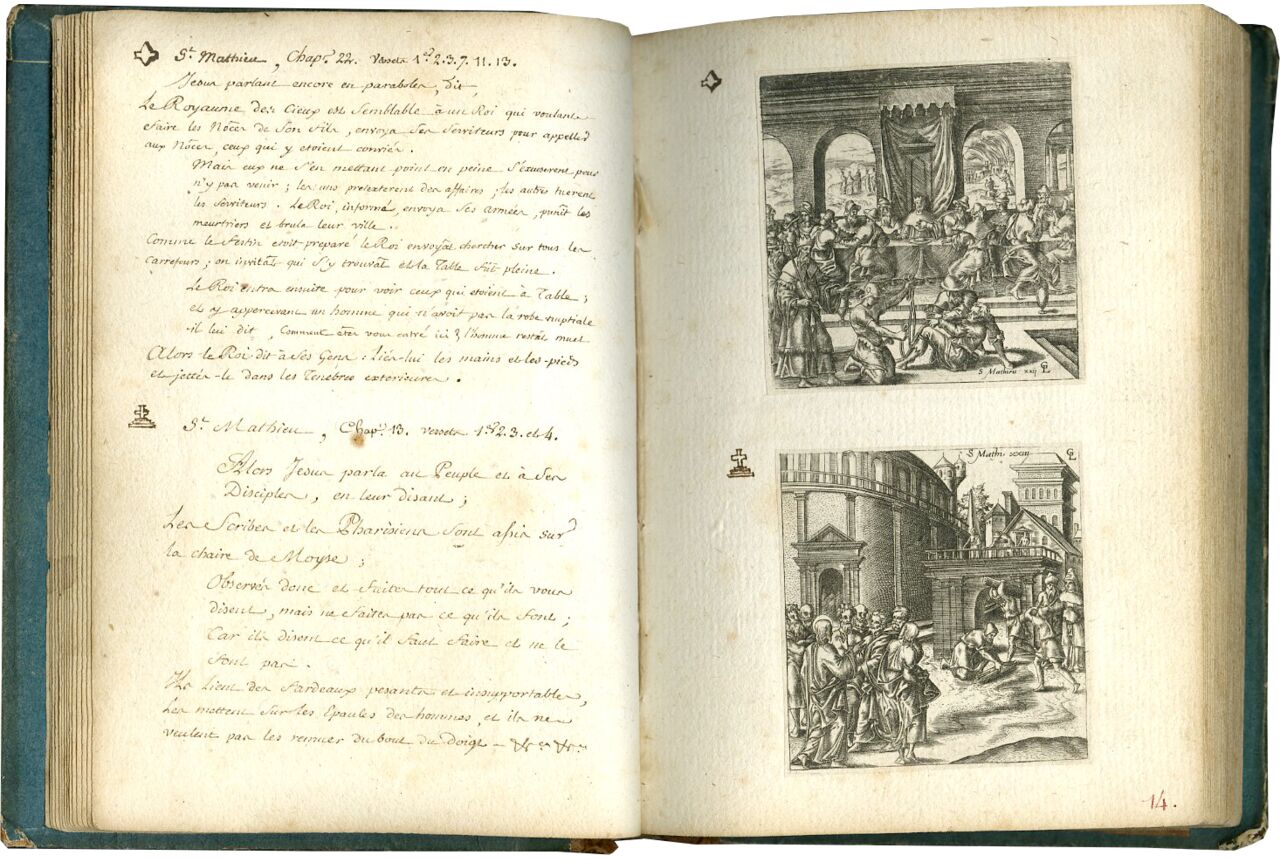 St Mathieu, Chapr. 22. Versets 1er 2.3.7.11.13.
Jesus parlant encore en paraboles, dit,
Le Royaume des Cieux est Semblable à un Roi qui voulant
faire les Nôces de Son fils, envoya Ses Serviteurs pour appeller
aux Nôces, ceux qui y etoient conviés.
Mais eux ne S'en mettant point en peine S'excuserent pour
n'y pas venir; les uns pretexterent des affaires, les autres tuerent
les Serviteurs. Le Roi, informé, envoya Ses armées, punit les
meurtriers et brula leur ville.
Comme le festin etoit preparé le Roi envoyat chercher sur tous les
carrefours; on invitat qui S'y trouvat et la Table fut pleine.
Le Roi entra ensuite pour voir ceux qui etoient à Table;
et y appercevant un homme qui n'avoit pas la robe nuptiale
il lui dit, Comment êtes vous entré ici? l'homme restat muet
Alors le Roi dit à Ses Gens: Liés-lui les mains et les pieds
et jettés-le dans les Tenebres exterieures.
St Mathieu, Chapr. 13. versets 1er 2.3. et 4.
Alors Jesus parla au Peuple et à Ses
Disciples, en leur disant;
Les Scribes et les Pharisiens Sont assis sur
la chaire de Moyse;
Observés donc et faites tout ce qu'ils vous
disent, mais ne faites pas ce qu'ils font;
Car ils disent ce qu'il faut faire et ne le
font pas.
Ils lient des fardeaux pesants et insupportables,
Les mettent Sur les Epaules des hommes, et ils ne
veulent pas les remuer du bout du doigt
S Mathieu xxij GL
S Mathi xxiii GL
14.